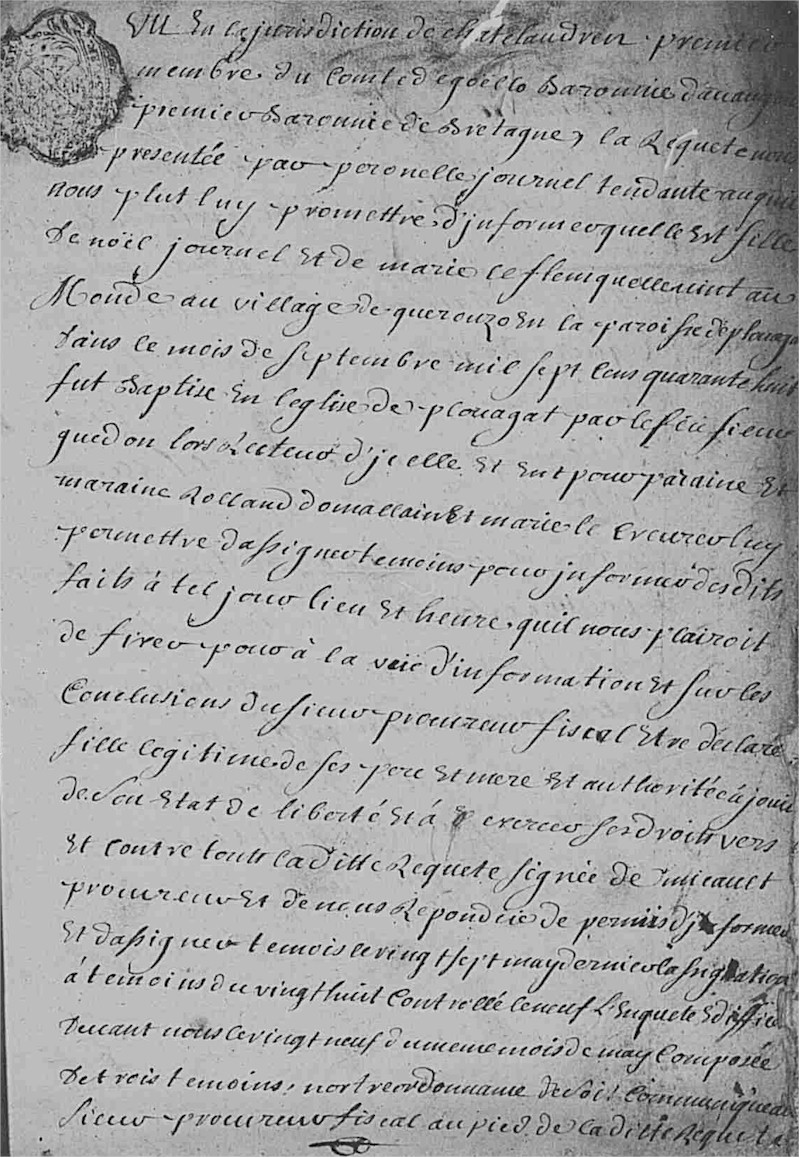 VU En la jurisdiction de chatelaudren premier
membre du Comté degoëllo Baronnie davaugour
premier Baronnie de Bretagne, la Requete nous
presentée par peronelle journel tendante a quil
nous plut luy promettre d'jnformer quelle Est fille
De noël journel Et de marie le flem quelle vint au
Monde au village de querouzo En la paroisse de plouaga
Dans le mois de septembre mil sept Cens quarante huit
fut Baptise En leglise de plouagat par le feu sieur
quedon lors Recteur d'jcelle Et Eut pour paraine Et
maraine Rolland Domallain Et marie le luy
permettre dassigner temoins pour jnformer desdits
faits à tel jour lieu Et heure quil nous plairoit
de fixer pour à la voie d'information Et sur les
Conclusions du sieur procureur fiscal Etre déclaré
fille legitime de ses pere Et mere Et authoritée à jouir
de son Etat de liberté Et á exercer ses droits vers
Et contre touts laditte Requete signée de
procureur Et de nous Repondue de permis d'jnformer
Et dassigner temois le vingt sept may dernier lassignation
á temoins du vingt huit Controllé le neuf l'Enquete Ediffiée
Devant nous le vingt neuf du meme mois de may Composée
De trois temoins, nortre ordonnance de soit Communiqué au
sieur procureur fiscal au pied de laditte Requete